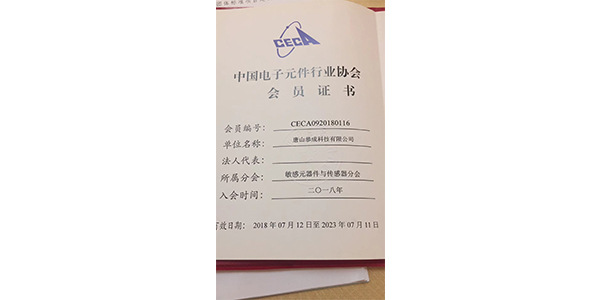 CECA
中国电子元件行业协会
会员证书
会员编号： CECA0920180116
单位名称： 唐山恭成科技有限公司
法人代表：
所属分会： 敏感元器件与传感器分会
入会时间： 二〇一八年
有效日期： 2018 年 07 月 12 日至 2023 年 07 月 11 日